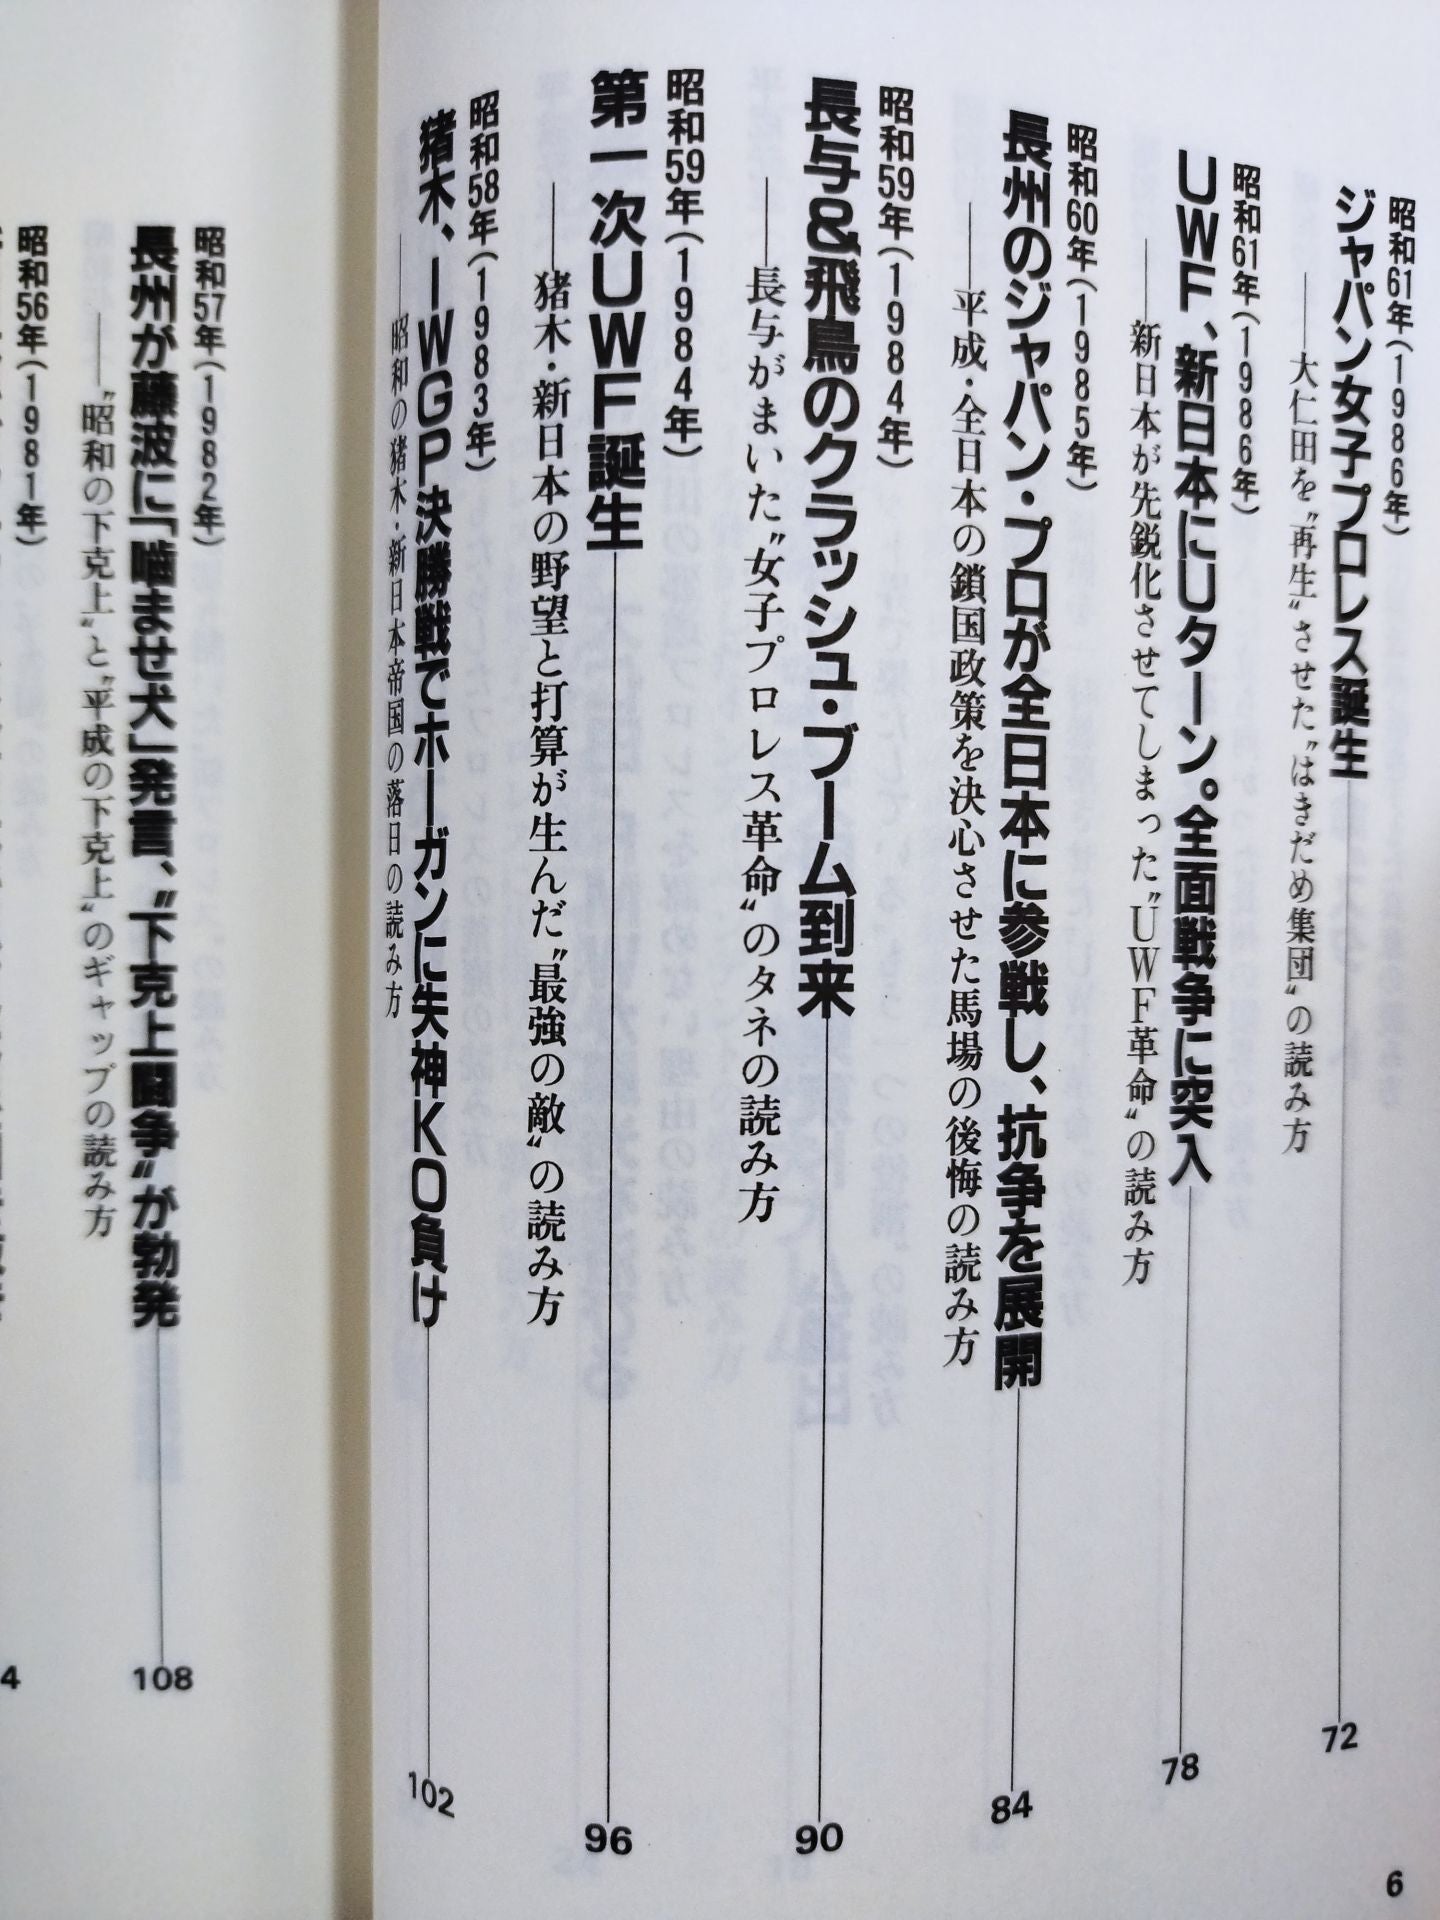 昭和61年(1986年)
ジャパン女子プロレス誕生
72
——大仁田を〝再生〟させた〝はきだめ集団〟の読み方
昭和61年(1986年)
UWF、新日本にUターン。全面戦争に突入
78
——新日本が先鋭化させてしまった〝UWF革命〟の読み方
昭和60年(1985年)
長州のジャパン・プロが全日本に参戦し、抗争を展開
84
——平成・全日本の鎖国政策を決心させた馬場の後悔の読み方
昭和59年(1984年)
長与&飛鳥のクラッシュ・ブーム到来
90
——長与がまいた〝女子プロレス革命〟のタネの読み方
昭和59年(1984年)
第一次UWF誕生
96
——猪木・新日本の野望と打算が生んだ〝最強の敵〟の読み方
昭和58年(1983年)
猪木、IWGP決勝戦でホーガンに失神KO負け
102
——昭和の猪木・新日本帝国の落日の読み方
6
昭和57年(1982年)
長州が藤波に「噛ませ犬」発言、〝下克上闘争〟が勃発
108
——〝昭和の下克上〟と〝平成の下克上〟のギャップの読み方
昭和56年(1981年)
4